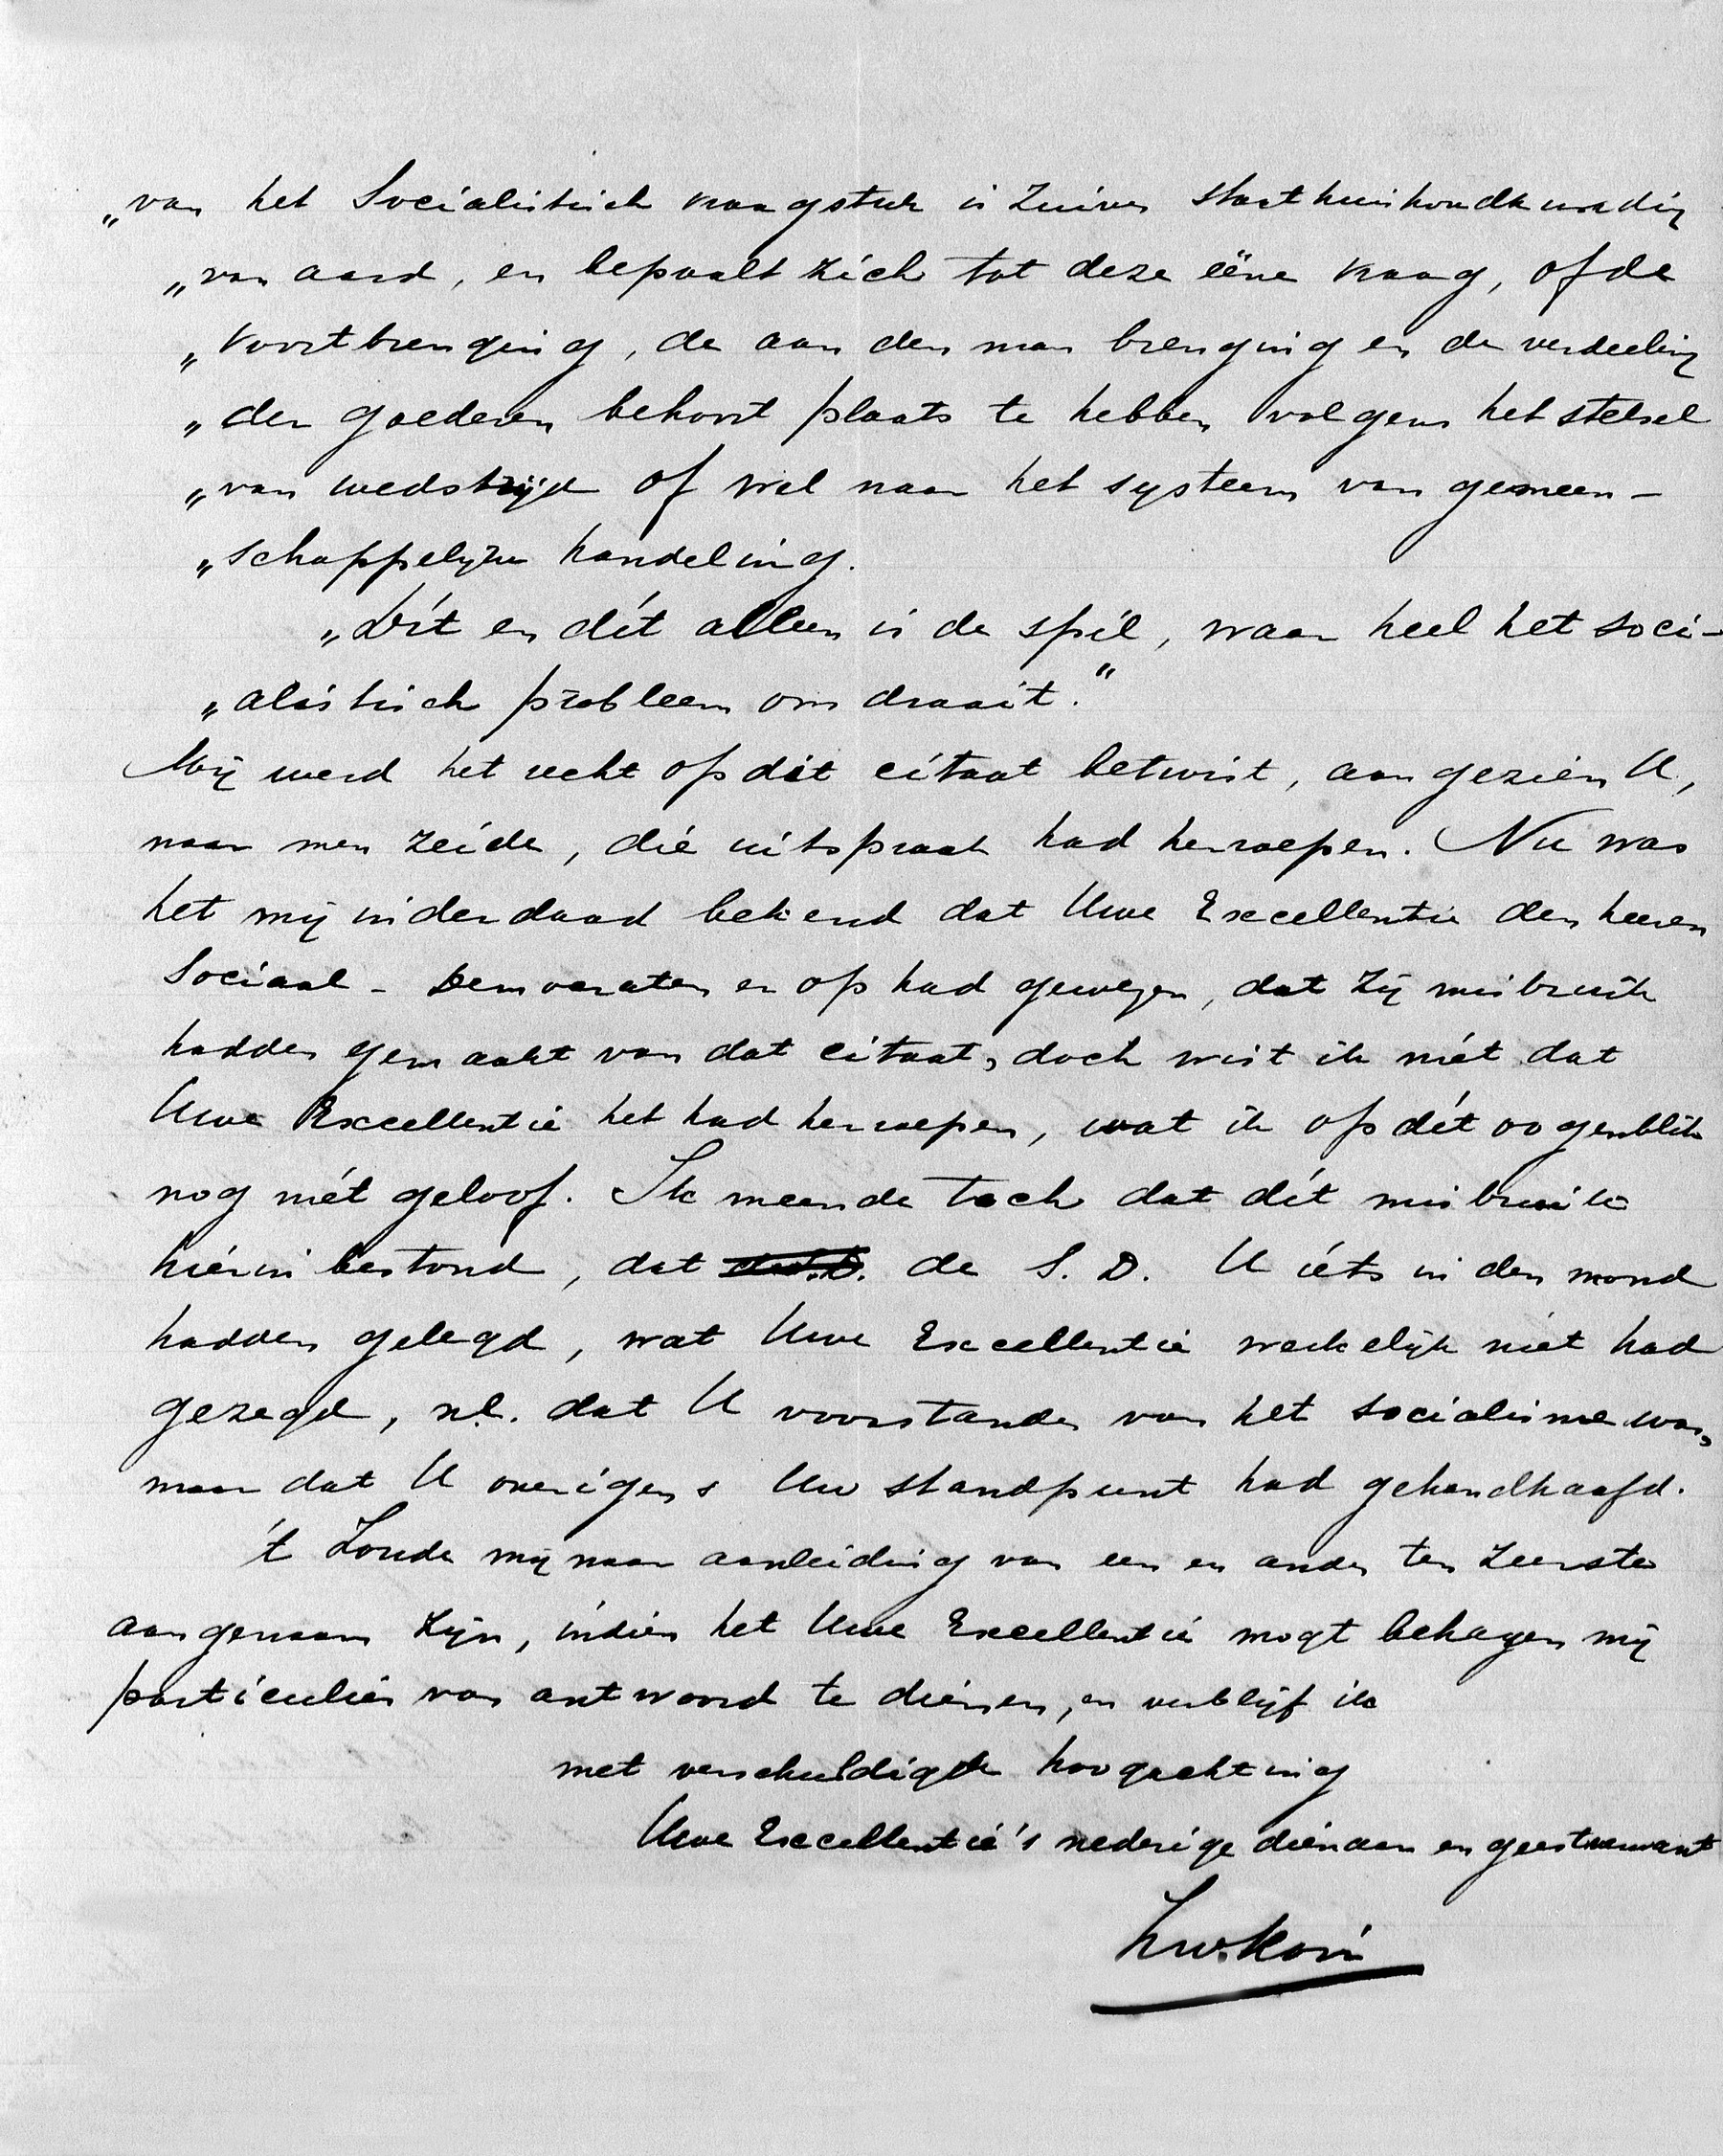 „van het Socialistisch vraagstuk is zuiver staathuishoudkundig
„van aard, en bepaalt zich tot deze ééne vraag, of de
„voortbrenging, de aan den man brenging en de verdeeling
„der goederen behoort plaats te hebben volgens het stelsel
„van wedstrijd of wel naar het systeem van gemeen-
„schappelijke handeling.
„Dít en dít alleen is de spil, waar heel het soci-
„alistisch probleem om draait."
Mij werd het recht op dit citaat betwist, aangezien U,
naar men zeide, die uitspraak had herroepen. Nu was
het mij inderdaad bekend dat Uwe Excellentie den heeren
Sociaal-Democraten er op had gewezen, dat zij misbruik
hadden gemaakt van dat citaat, doch wist ik niet dat
Uwe Excellentie het had herroepen, wat ik op dit oogenblik
nog niet geloof. Ik meende toch dat dit misbruik
hierin bestond, dat de S. D. U iets in den mond
hadden gelegd, wat Uwe Excellentie werkelijk niet had
gezegd, n.l. dat U voorstander van het socialisme was,
maar dat U overigens Uw standpunt had gehandhaafd.
't Zoude mij naar aanleiding van een en ander ten zeerste
aangenaam zijn, indien het Uwe Excellentie mogt behagen mij
particulier van antwoord te dienen, en verblijf ik
met verschuldigde hoogachting
Uwe Excellentie's nederige dienaar en geestverwant